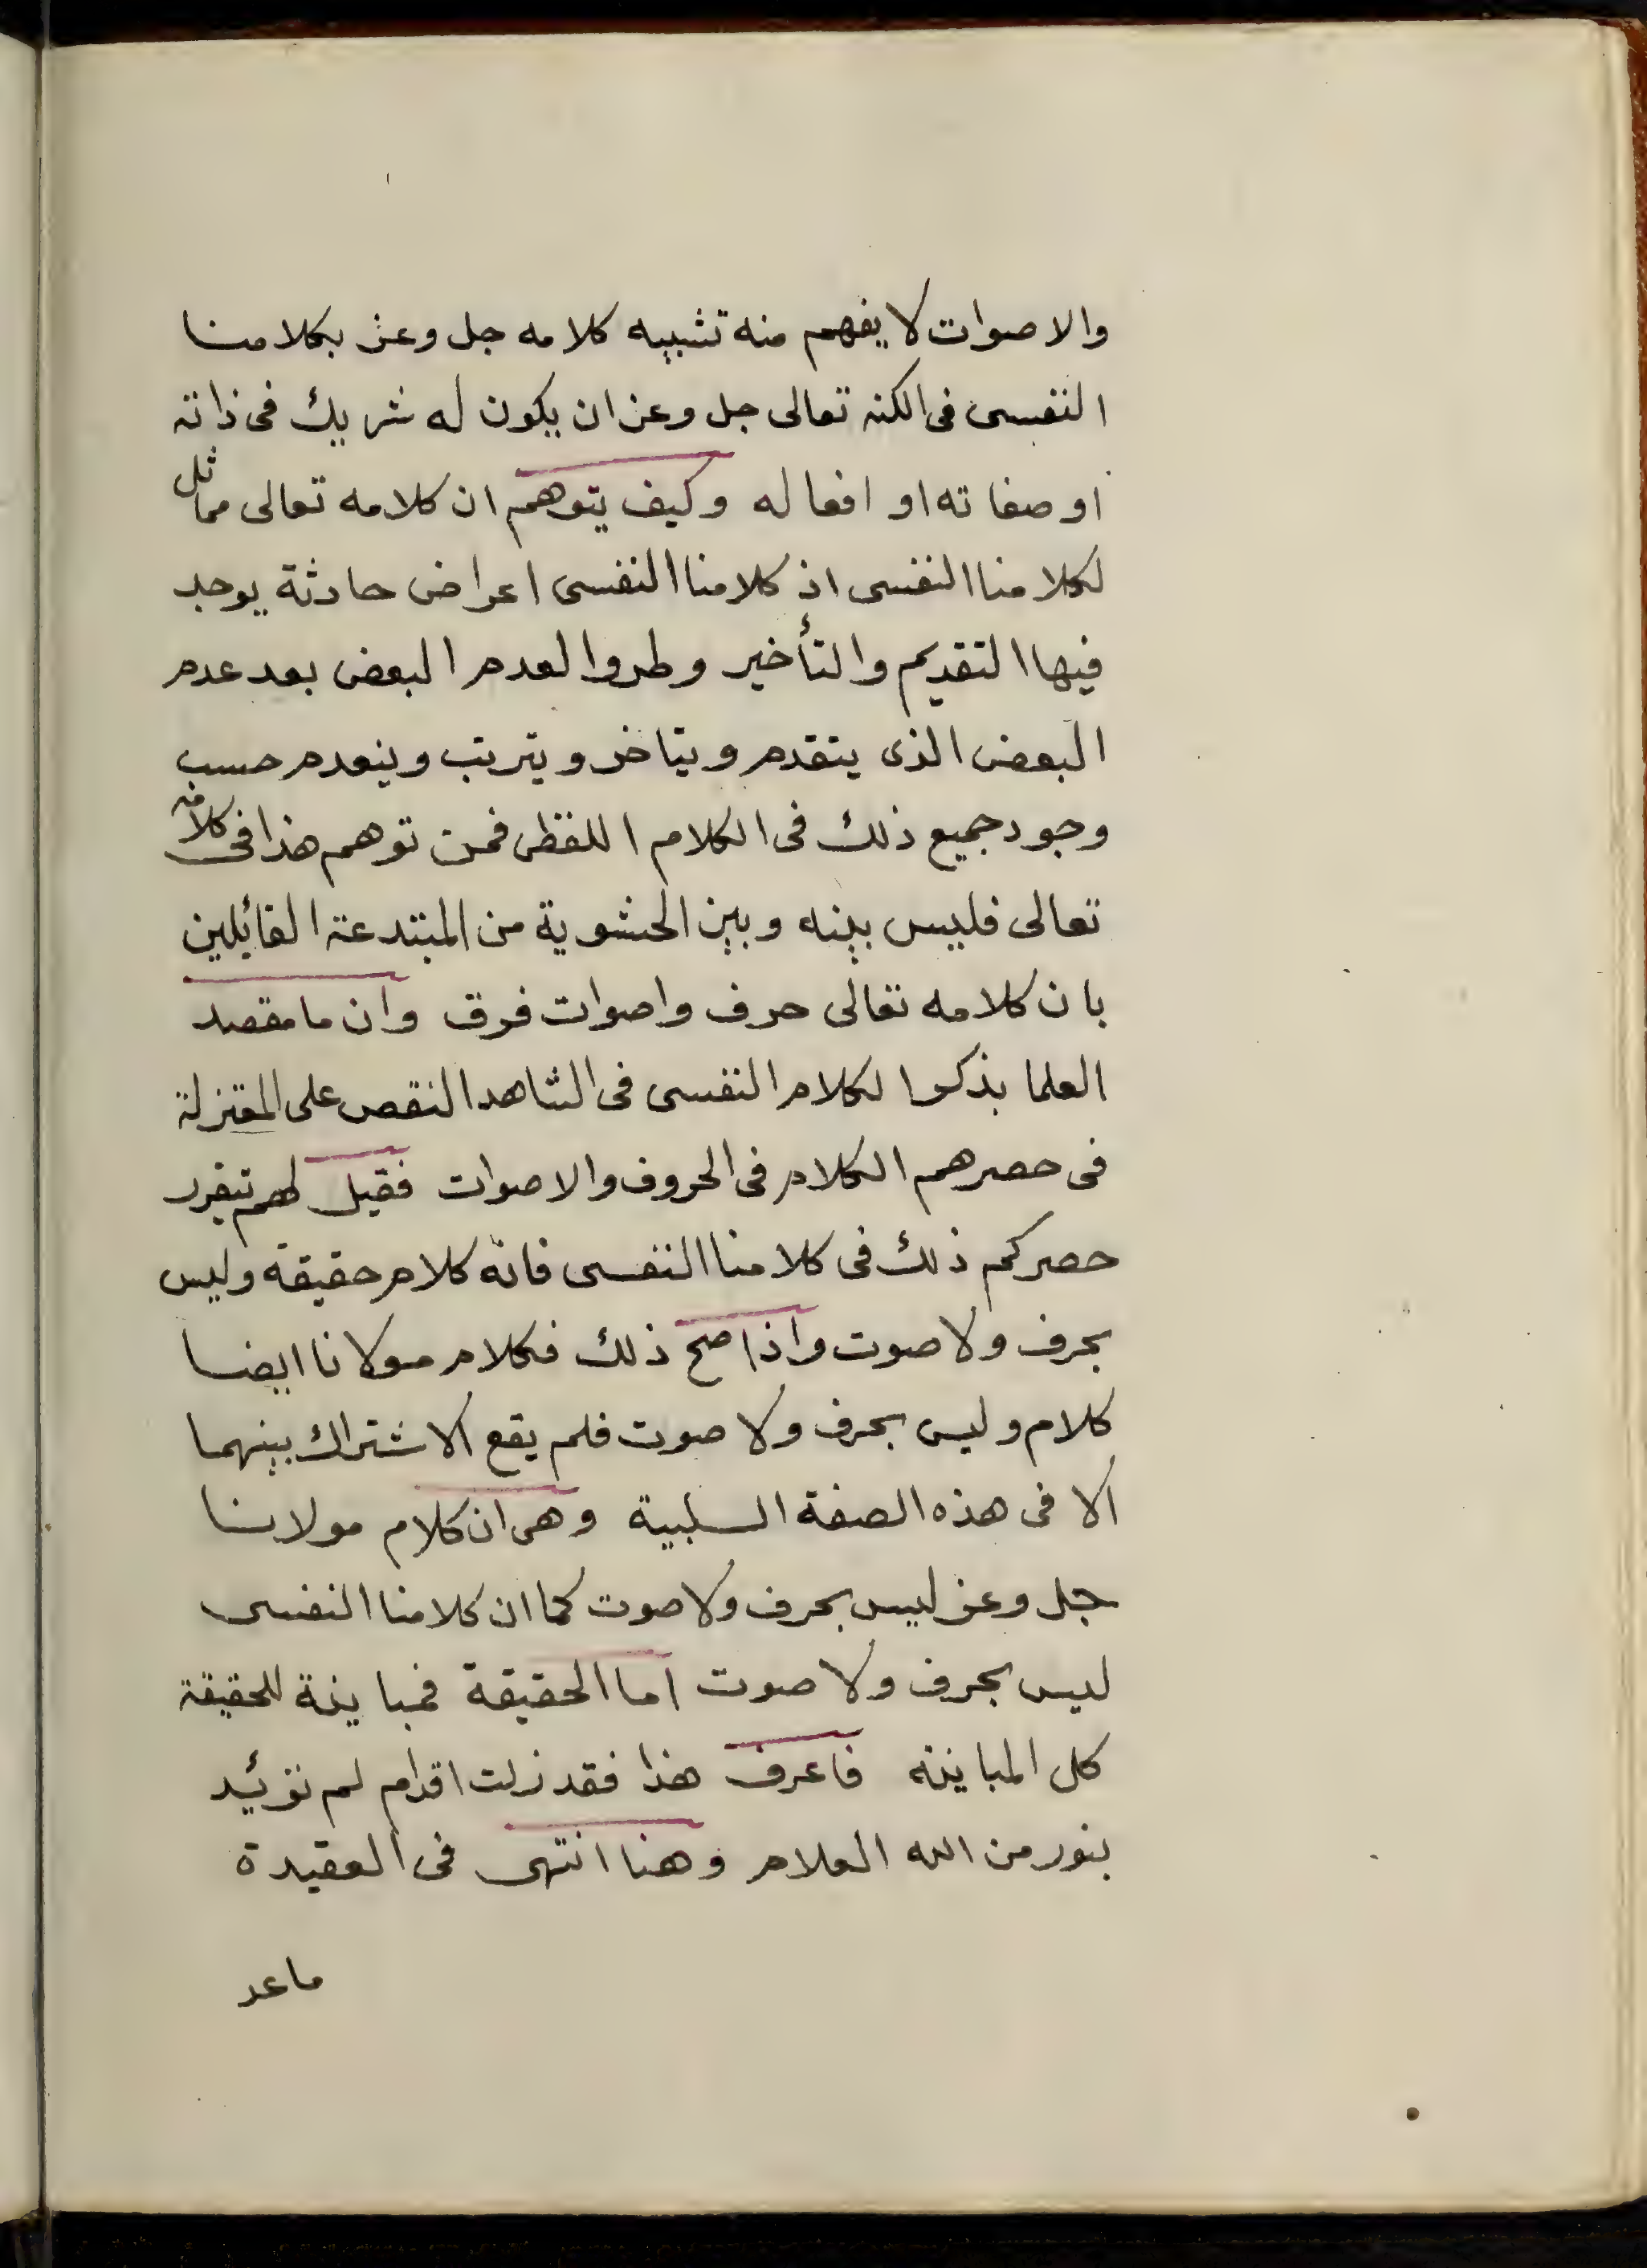 والاصوات لا يفهم منه تشبيه كلامه جل وعز بكلامنا
النفسى فى الكنه تعالى جل وعز ان يكون له شريك فى ذاته
او صفاته او افعاله وكيف يتوهم ان كلامه تعالى مماثل
لكلامنا النفسى اذ كلامنا النفسى اعراض حادثة يوجد
فيها التقديم والتأخير وطروا لعدم البعض بعد عدم
البعض الذى يتقدم ويتاخر ويترتب وينعدم حسب
وجود جميع ذلك فى الكلام اللفظى فمن توهم هذا فى كلامه
تعالى فليس بينه وبين الحشوية من المبتدعة القائلين
بان كلامه تعالى حرف واصوات فرق وان ما مقصد
العلما بذكر الكلام النفسى فى الشاهد النقص على المعتزلة
فى حصرهم الكلام فى الحروف والاصوات فقيل لهم تيقرر
حصركم ذلك فى كلامنا النفسى فانه كلام حقيقة وليس
بحرف ولا صوت واذا صح ذلك فكلام مولانا ايضا
كلام وليس بحرف ولا صوت فلم يقع الاشتراك بينهما
الا فى هذه الصفة السلبية وهى ان كلام مولانا
جل وعز ليس بحرف ولا صوت كما ان كلامنا النفسى
ليس بحرف ولا صوت اما الحقيقة فمباينة للحقيقة
كل المباينة فاعرف هذا فقد زلت اقدام لم تؤيد
بنور من الله العلام وهنا انتهى فى العقيدة
ماعد